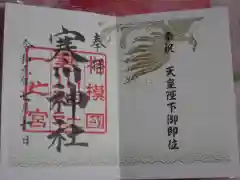 奉祝
天皇陛下御即位
奉拝
相模國
寒川神社
一之宮